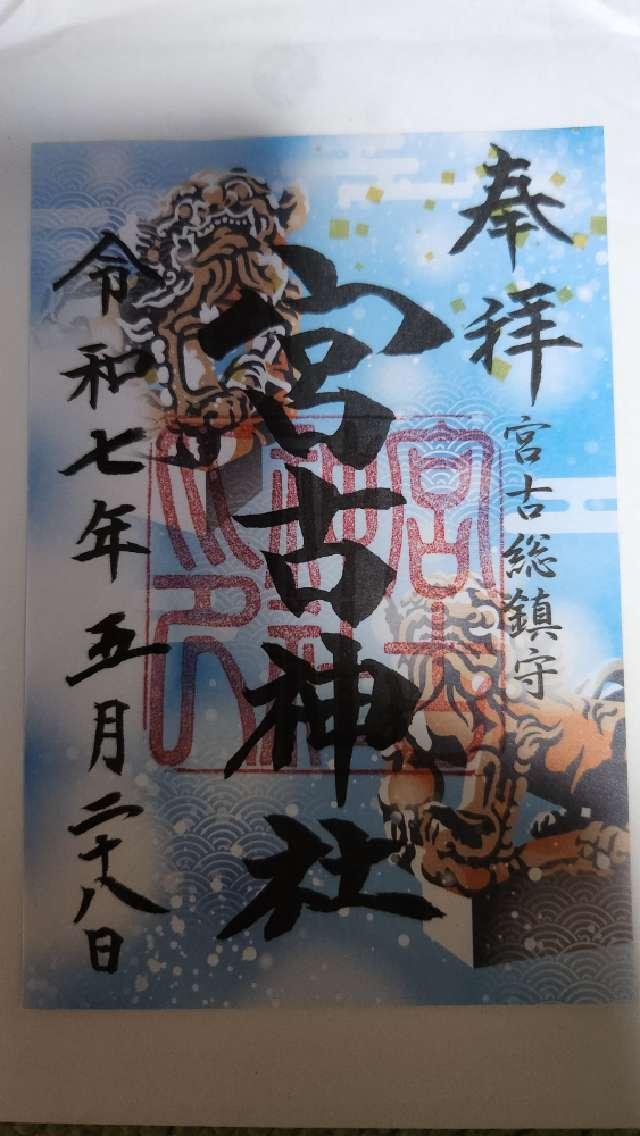 奉拝
宮古総鎮守
宮古神社
令和七年五月二十八日